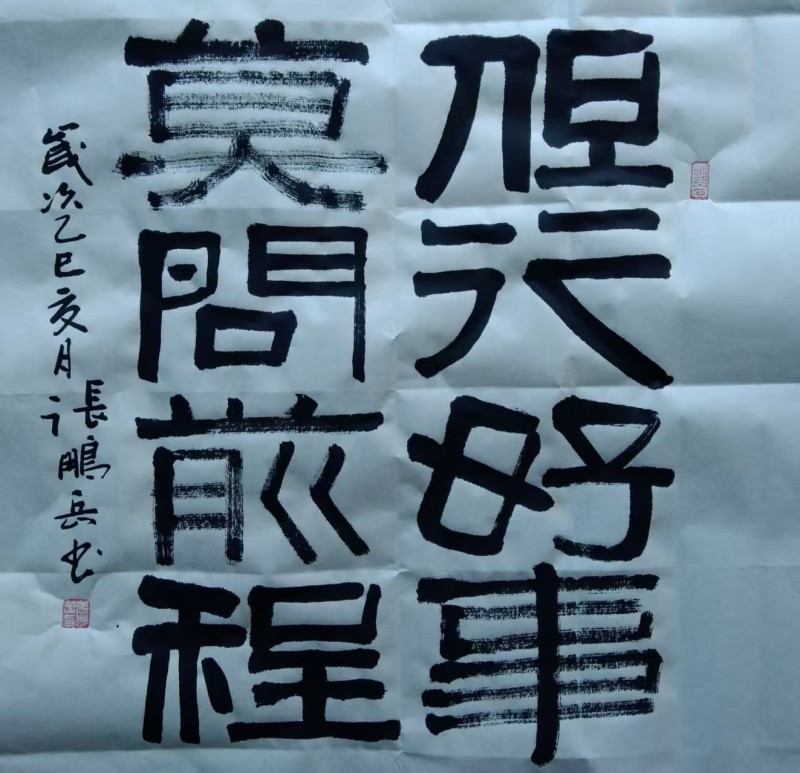 但行好事
莫問前程
歲次乙巳亥月
張鵬兵书